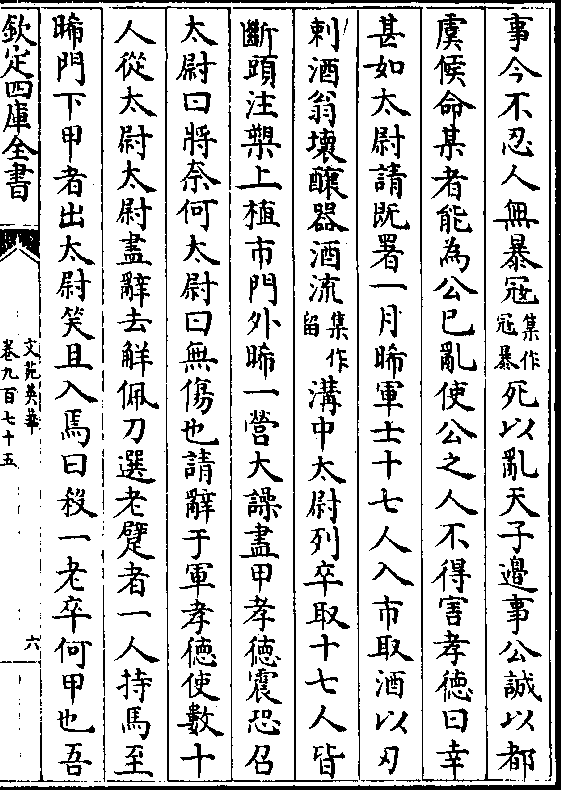 事今不忍人無暴冦集作冦暴死以亂天子邊事公誠以都
虞候命某者能為公已亂使公之人不得害孝德曰幸
甚如太尉請既署一月晞軍士十七人入市取酒以刃
刺酒翁壞釀器酒流集作留溝中太尉列卒取十七人皆
斷頭注槊上植市門外晞一營大譟盡甲孝德震恐召
太尉曰將奈何太尉曰無傷也請辭于軍孝德使數十
人從太尉太尉盡辭去解佩刀選老躄者一人持馬至
晞門下甲者出太尉笑且入焉曰殺一老卒何甲也吾
欽定四庫全書
文苑英華
卷九百七十五
六